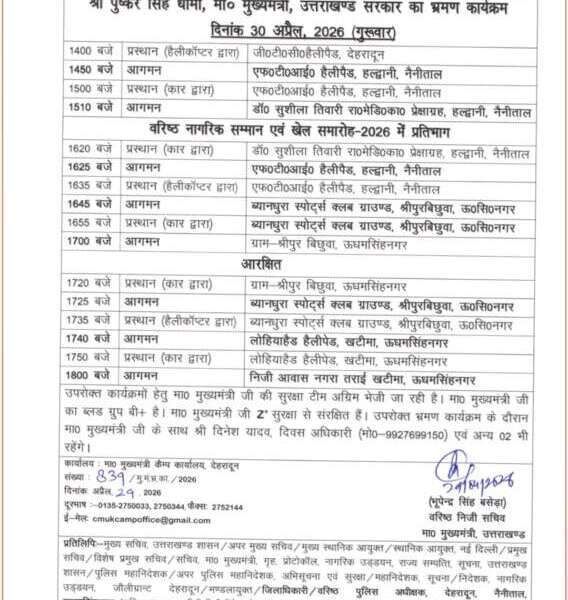 श्री पुष्कर सिंह धामी, मा0 मुख्यमंत्री, उत्तराखण्ड सरकार का भ्रमण कार्यक्रम
दिनांक 30 अप्रैल, 2026 (गुरूवार)
1400 बजे प्रस्थान (हैलीकॉप्टर द्वारा) जी0टी0सी0हैलीपैड, देहरादून
1450 बजे आगमन एफ0टी0आई0 हैलीपैड, हल्द्वानी, नैनीताल
1500 बजे प्रस्थान (कार द्वारा) एफ0टी0आई0 हैलीपैड, हल्द्वानी, नैनीताल
1510 बजे आगमन डॉ0 सुशीला तिवारी रा0मेडि0का0 प्रेक्षाग्रह, हल्द्वानी, नैनीताल
वरिष्ठ नागरिक सम्मान एवं खेल समारोह-2026 में प्रतिभाग
1620 बजे प्रस्थान (कार द्वारा) डॉ0 सुशीला तिवारी रा0मेडि0का0 प्रेक्षाग्रह, हल्द्वानी, नैनीताल
1625 बजे आगमन एफ0टी0आई0 हैलीपैड, हल्द्वानी, नैनीताल
1635 बजे प्रस्थान (हैलीकॉप्टर द्वारा) एफ0टी0आई0 हैलीपैड, हल्द्वानी, नैनीताल
1645 बजे आगमन ब्यानधुरा स्पोर्ट्स क्लब ग्राउण्ड, श्रीपुरबिछुवा, ऊ0सि0नगर
1655 बजे प्रस्थान (कार द्वारा) ब्यानधुरा स्पोर्ट्स क्लब ग्राउण्ड, श्रीपुरबिछुवा, ऊ0सि0नगर
1700 बजे आगमन ग्राम-श्रीपुर बिछुवा, ऊधमसिंहनगर
आरक्षित
1720 बजे प्रस्थान (कार द्वारा) ग्राम-श्रीपुर बिछुवा, ऊधमसिंहनगर
1725 बजे आगमन ब्यानधुरा स्पोर्ट्स क्लब ग्राउण्ड, श्रीपुरबिछुवा, ऊ0सि0नगर
1735 बजे प्रस्थान (हैलीकॉप्टर द्वारा) ब्यानधुरा स्पोर्ट्स क्लब ग्राउण्ड, श्रीपुरबिछुवा, ऊ0सि0नगर
1740 बजे आगमन लोहियाहैड हैलीपैड, खटीमा, ऊधमसिंहनगर
1750 बजे प्रस्थान (कार द्वारा) लोहियाहैड हैलीपैड, खटीमा, ऊधमसिंहनगर
1800 बजे आगमन निजी आवास नगरा तराई खटीमा, ऊधमसिंहनगर
उपरोक्त कार्यक्रमों हेतु मा0 मुख्यमंत्री जी की सुरक्षा टीम अग्रिम भेजी जा रही है। मा0 मुख्यमंत्री जी
का ब्लड ग्रुप बी+ है। मा0 मुख्यमंत्री जी Z+ सुरक्षा से संरक्षित हैं। उपरोक्त भ्रमण कार्यक्रम के दौरान
मा0 मुख्यमंत्री जी के साथ श्री दिनेश यादव, दिवस अधिकारी (मो0-9927699150) एवं अन्य 02 भी
रहेंगे।
कार्यालय : मा0 मुख्यमंत्री कैम्प कार्यालय, देहरादून
संख्या : 839 /मु.मं.भ्र.का./2026
दिनांक अप्रैल, 29, 2026
दूरभाष :-0135-2750033, 2750344, फैक्सः 2752144
ई-मेल: cmukcampoffice@gmail.com
29/04/2026
(भूपेन्द्र सिंह बसेड़ा)
वरिष्ठ निजी सचिव
मा0 मुख्यमंत्री, उत्तराखण्ड
प्रतिलिपिः-मुख्य सचिव, उत्तराखण्ड शासन/अपर मुख्य सचिव/मुख्य स्थानिक आयुक्त/स्थानिक आयुक्त, नई दिल्ली/प्रमुख
सचिव/विशेष प्रमुख सचिव/सचिव, मा0 मुख्यमंत्री, गृह, प्रोटोकॉल, नागरिक उड्डयन, राज्य सम्पत्ति, सूचना, उत्तराखण्ड
शासन/पुलिस महानिदेशक/अपर पुलिस महानिदेशक, अभिसूचना एवं सुरक्षा/महानिदेशक, सूचना/निदेशक, नागरिक
उड्डयन, जौलीग्रान्ट देहरादून/मण्डलायुक्त/जिलाधिकारी/वरिष्ठ पुलिस अधीक्षक, देहरादून, नैनीताल,